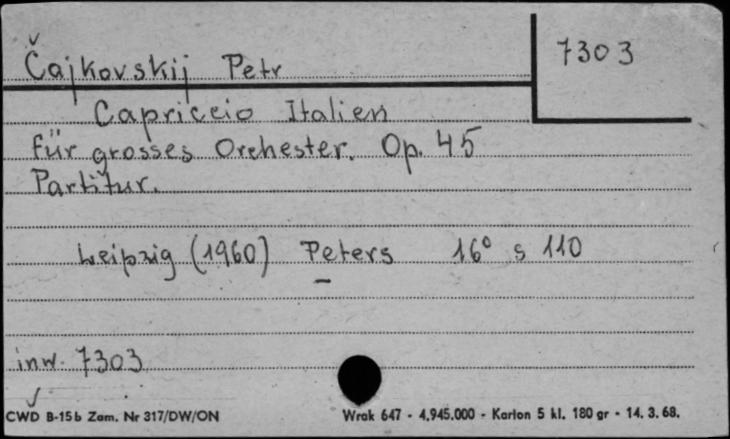 7303
Čajkovskij Petr
Capriccio Italien
für grosses Orchester. Op. 45
Partitur.
Leipzig (1960) Peters 16° s 110
inw. 7303
CWD B-15b Zam. Nr 317/DW/ON
Wrak 647 - 4.945.000 - Karton 5 kl. 180 gr - 14. 3. 68.